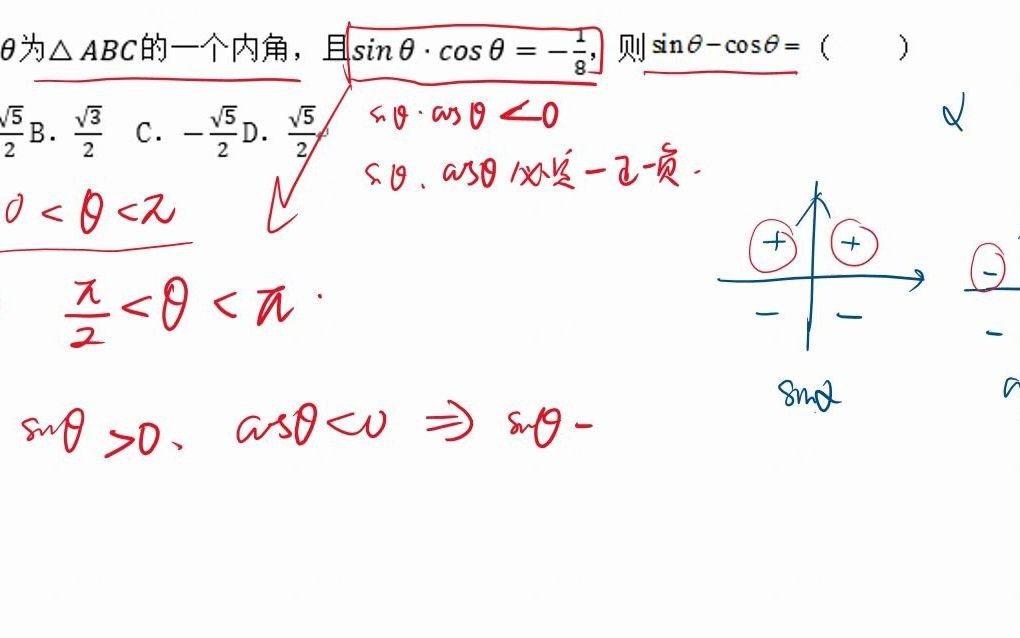 θ为△ABC的一个内角，且sin θ · cos θ = −1/8，则 sinθ−cosθ=（ ）
√5/2 B. √3/2 C. −√5/2 D. √5/2
sinθ·cosθ<0
sinθ、cosθ 必定一正一负.
α
0<θ<π
+ +
− −
−
−
π/2<θ<π.
sinα
sinθ>0、cosθ<0 ⇒ sinθ−